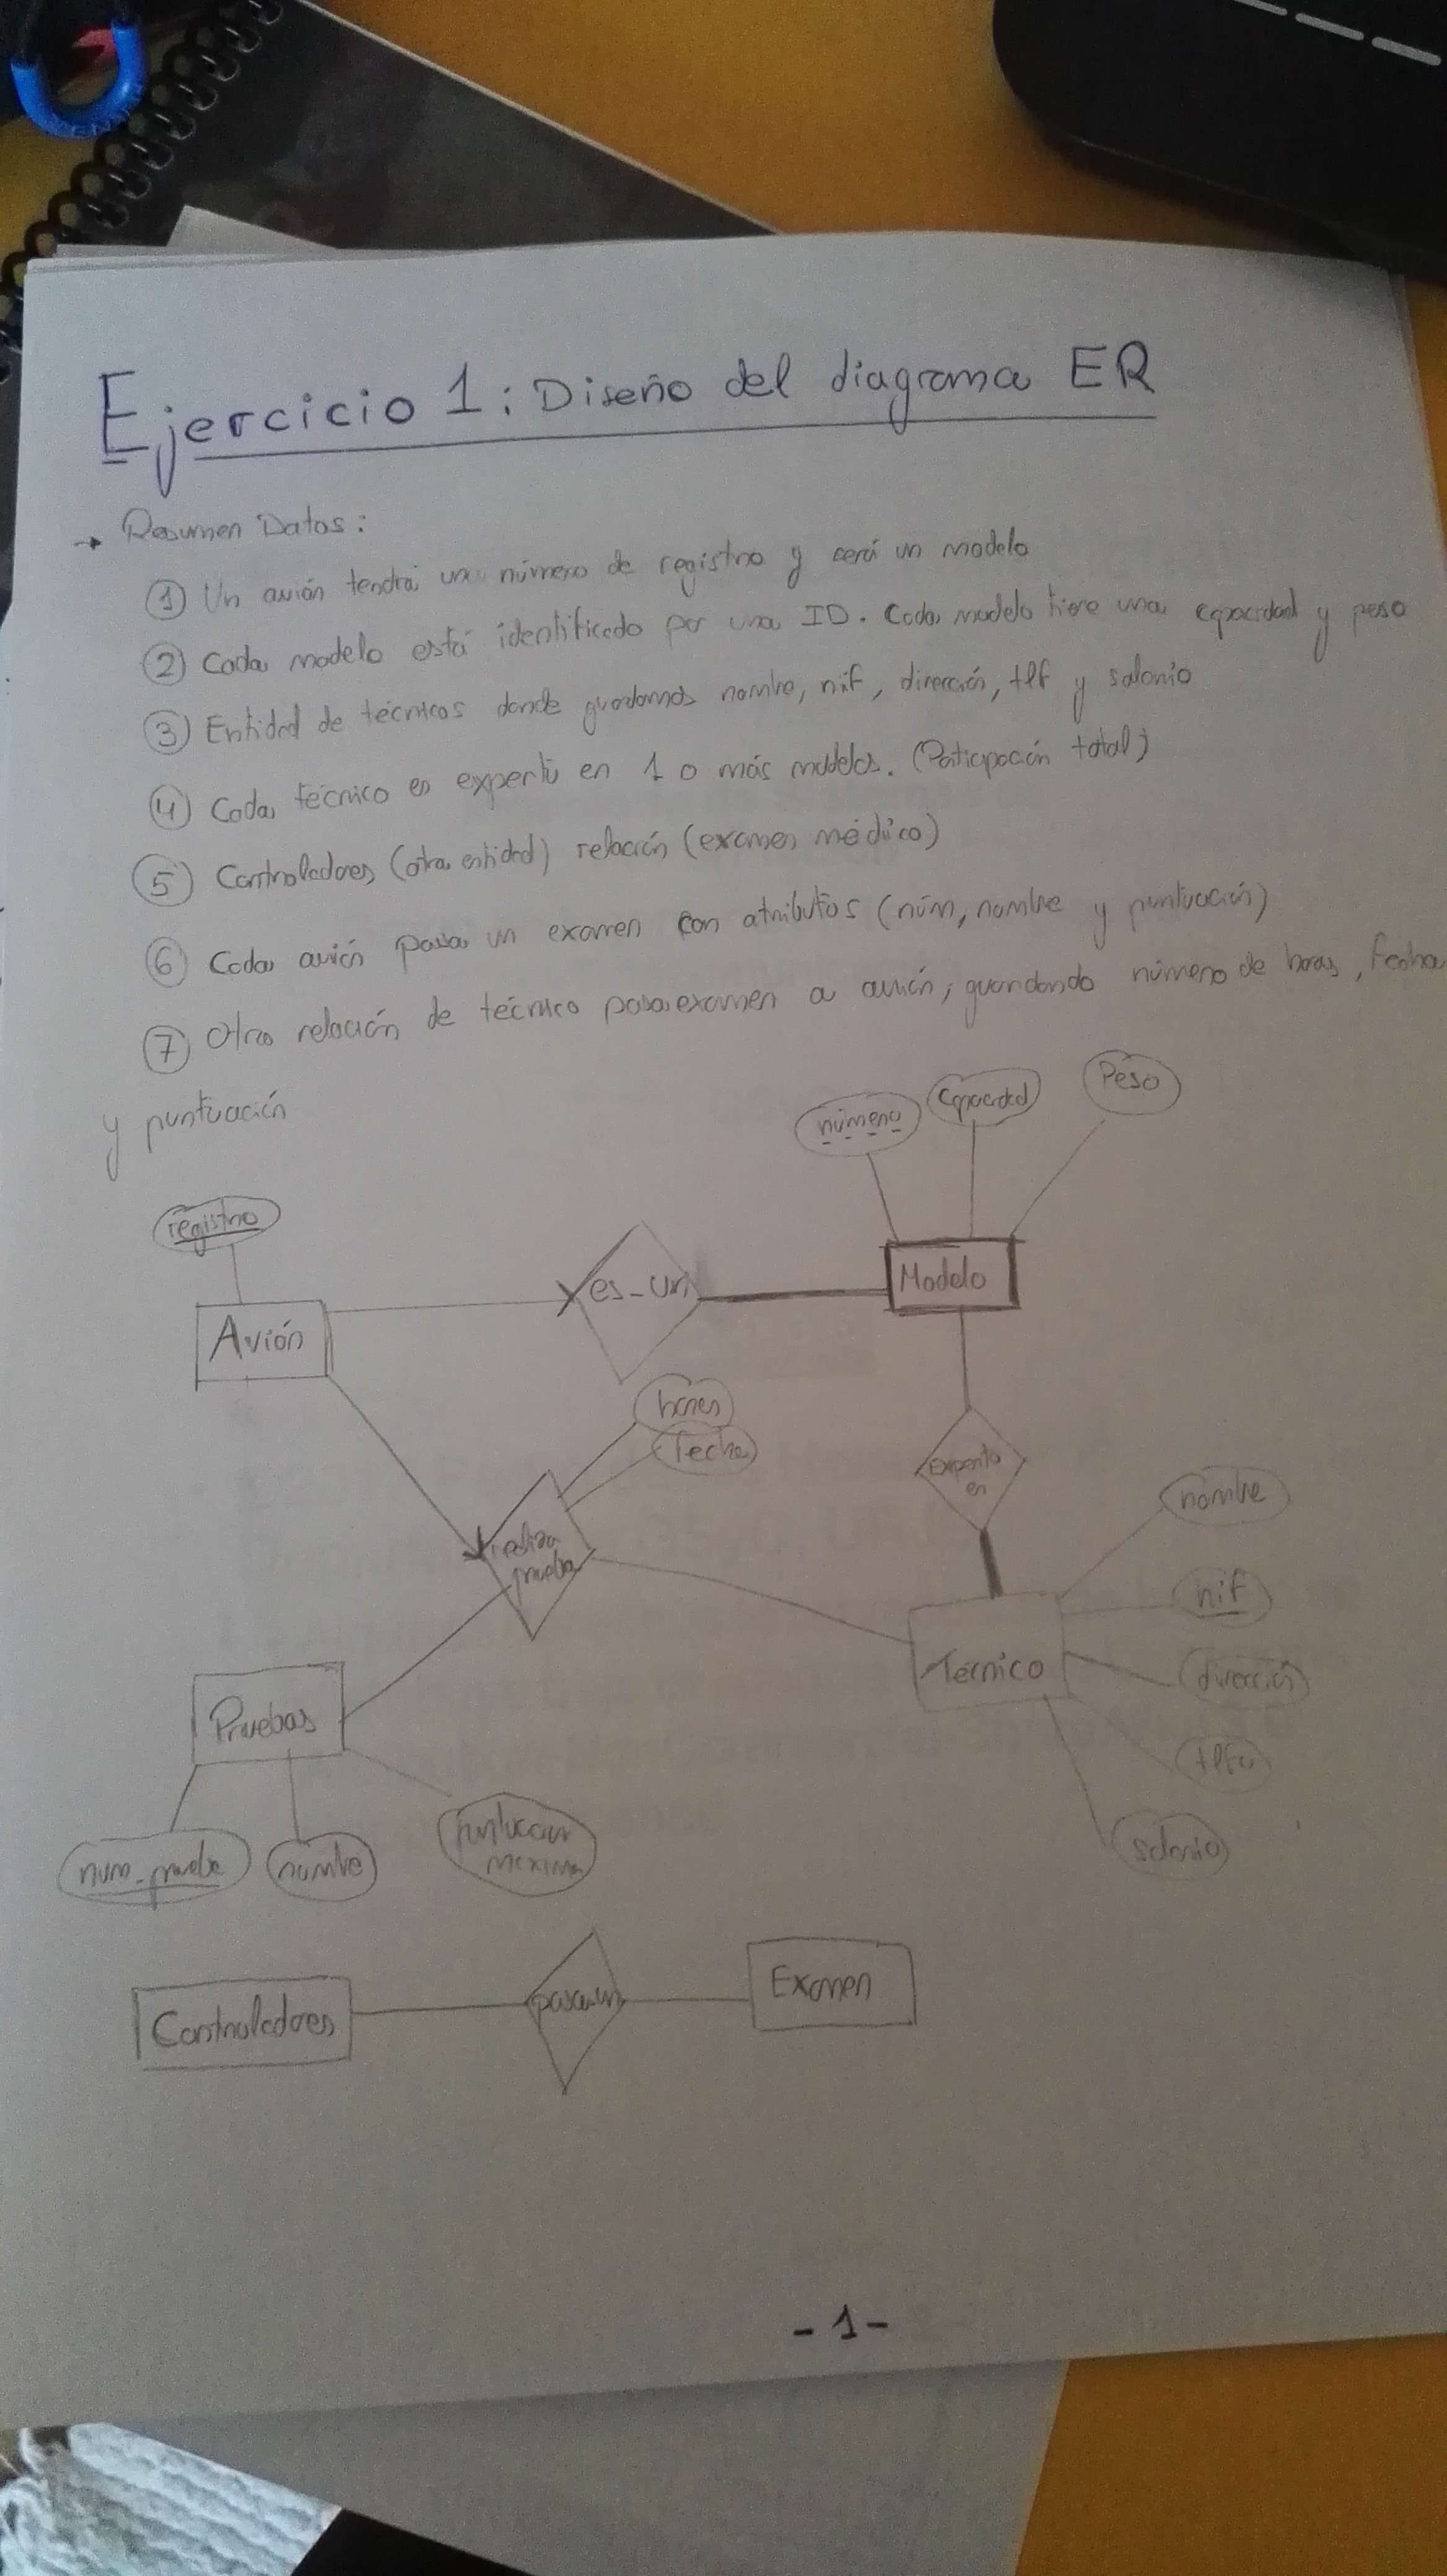 Ejercicio 1: Diseño del diagrama ER
→ Resumen Datos:
① Un avión tendrá un número de registro y será un modelo
② Cada modelo está identificado por una ID. Cada modelo tiene una capacidad y peso
③ Entidad de técnicos donde guardamos nombre, nif, dirección, tlf y salario
④ Cada técnico es experto en 1 o más modelos. (Participación total)
⑤ Controladores (otra entidad) relación (examen médico)
⑥ Cada avión pasa un examen con atributos (núm, nombre y puntuación)
⑦ Otra relación de técnico pasa examen a avión, guardando número de horas, fecha
y puntuación
número
capacidad
Peso
registro
Avión
es_un
Modelo
horas
fecha
experto
en
realiza
prueba
nombre
nif
Técnico
dirección
tlfn
salario
Pruebas
num_prueba
nombre
puntuacion
maxima
Controladores
pasa_un
Examen
- 1 -